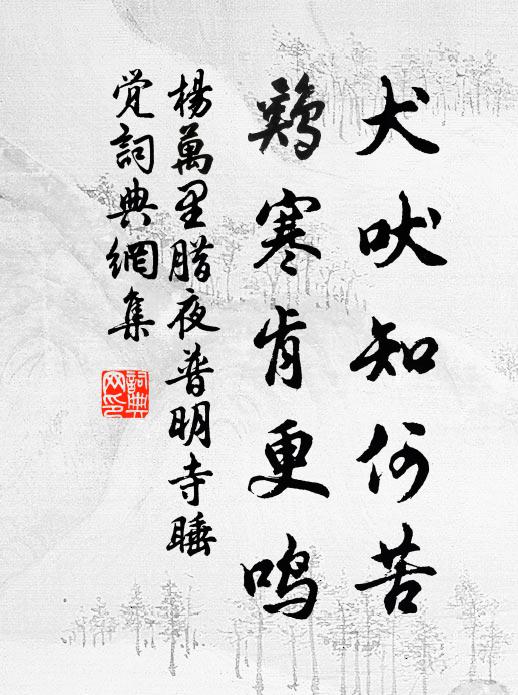 犬吠知何苦
鷄寒肯更鸣
楊萬里腊夜普明寺睡
觉詞典網集
詞典
网印